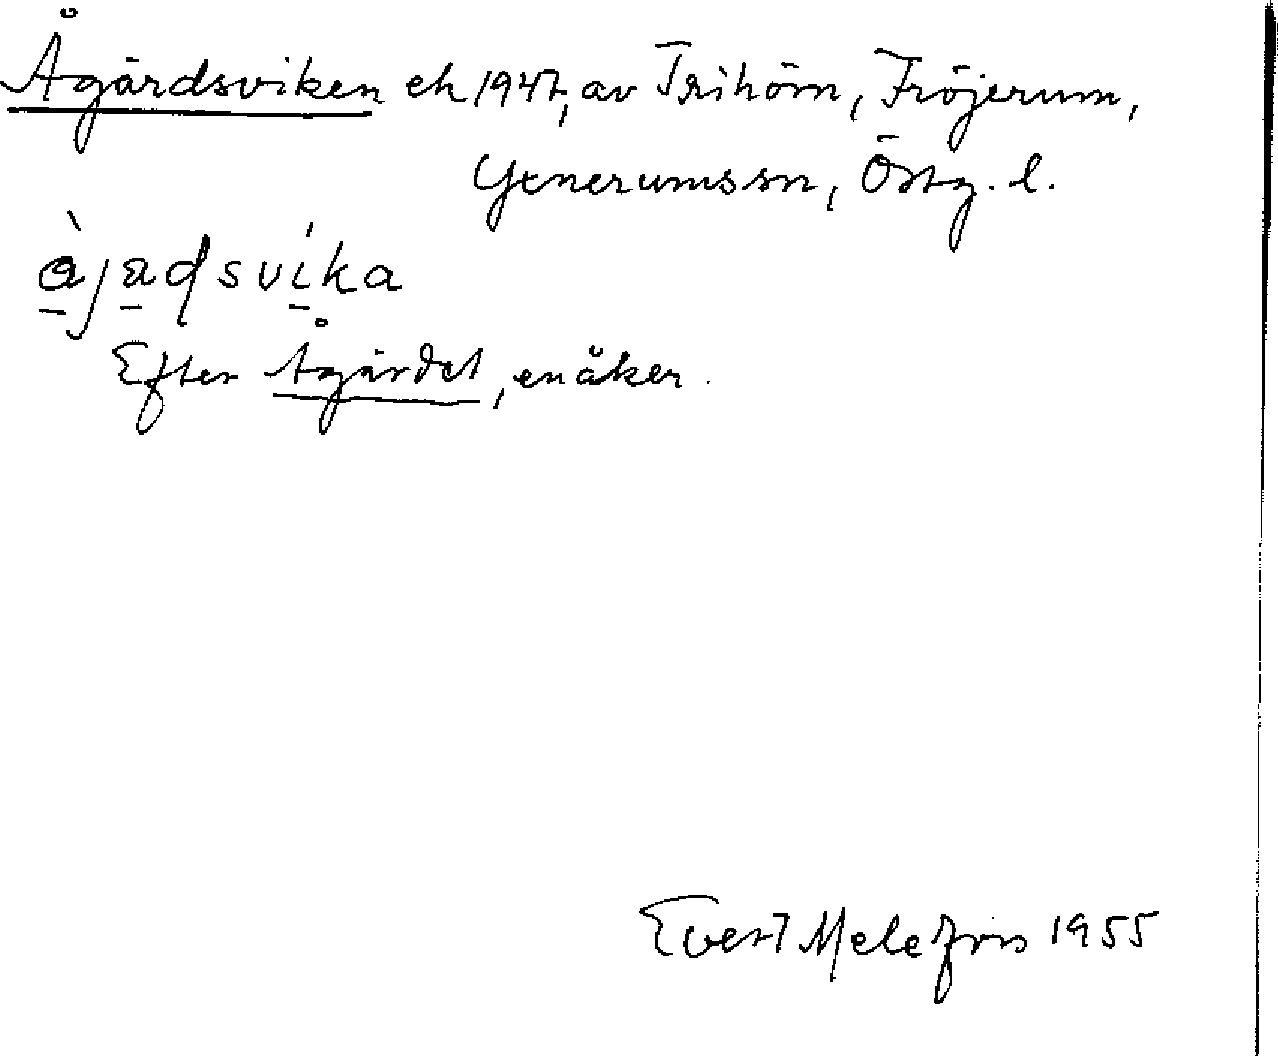 Ågärdsviken ek 1947, av Trihörn, Fröjerum,
Gtnerumssn, Östg. l.
àjadsvíka
Efter Ågärdet, en åker.
Evert Melefors 1955